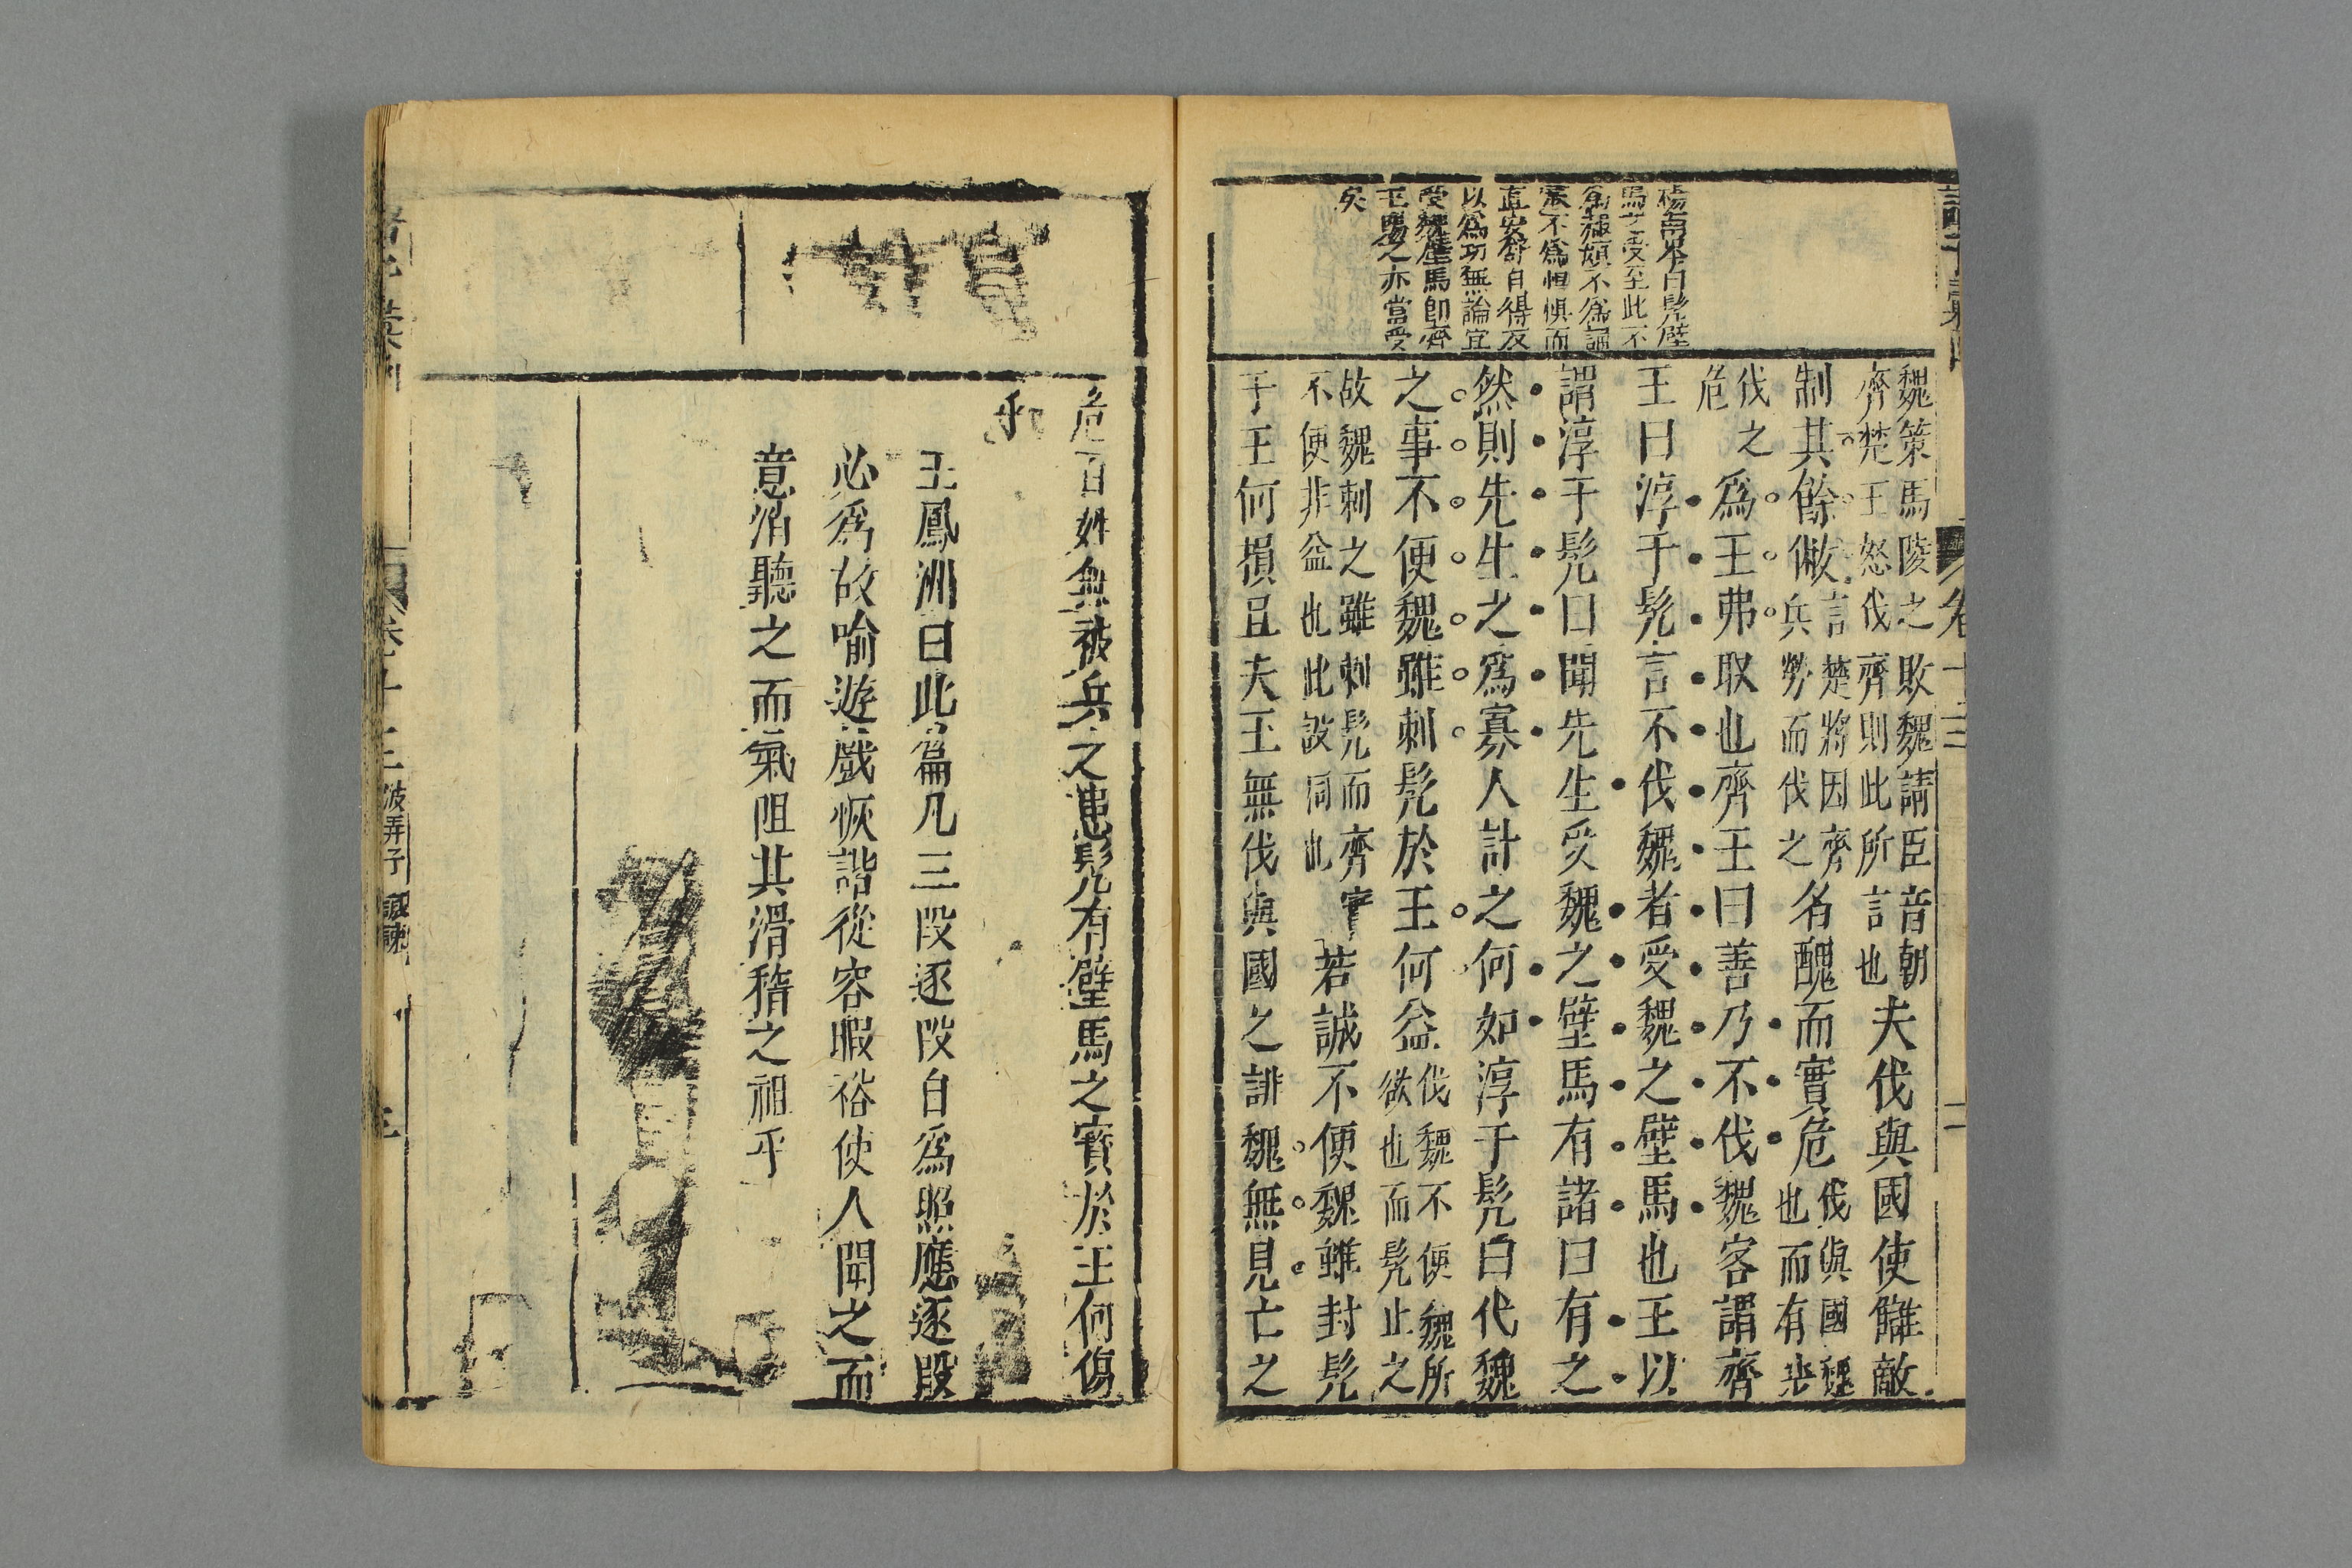 魏策馬陵之敗魏請臣畜朝
齊楚王怒伐齊則此所言也
夫伐與國使讎敵
制其餘敝
言楚將因齊
兵勞而伐之
名醜而實危
伐與國魏
也而有
伐之
危
爲王弗取也齊王曰善乃不伐魏客謂齊
王曰淳于髡言不伐魏者受魏之璧馬也王以
謂淳于髡曰聞先生受魏之璧馬有諸曰有之
然則先生之爲寡人計之何如淳于髡曰伐魏
之事不便魏雖刺髡於王何益
伐魏不便魏所
欲也而髡止之
故魏刺之雖刺髡而齊實
不便非益也此設同也
若誠不便魏雖封髡
于王何損且夫王無伐與國之誹魏無見亡之
馬之受至此不
爲赧頳不爲
不爲怛惧而
直安舒自得反
以爲功無論宜
受魏璧馬即齊
王賜之亦當受
矣
危百姓無被兵之患髡有璧馬之寶於王何傷
乎
王鳳洲曰此篇凡三段逐段自爲照應逐段
必爲故喻遊戲恢諧從容暇裕使人聞之而
意消聽之而氣阻其滑稽之祖乎
卷十三
波弄子